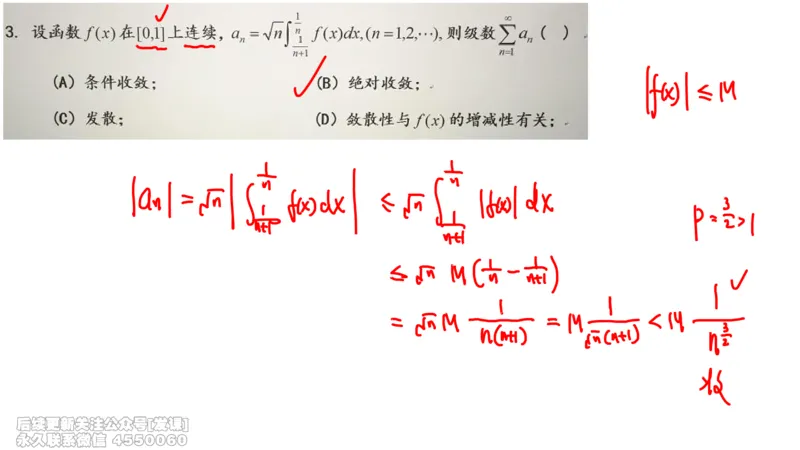 3. 设函数 f(x) 在 [0,1] 上连续，a_n = √n ∫_{1/(n+1)}^{1/n} f(x)dx, (n = 1,2,⋯), 则级数 ∑_{n=1}^{∞} a_n (  )
(A) 条件收敛；
(B) 绝对收敛；
(C) 发散；
(D) 敛散性与 f(x) 的增减性有关；
|f(x)| ≤ M
|a_n| = √n |∫_{1/(n+1)}^{1/n} f(x)dx| ≤ √n ∫_{1/(n+1)}^{1/n} |f(x)| dx
P = 3/2 > 1
≤ √n M (1/n - 1/(n+1))
= √n M 1/(n(n+1)) = M 1/(√n(n+1)) < M 1/n^{3/2}
收敛
后续更新关注公众号[发课]
永久联系微信 4550060